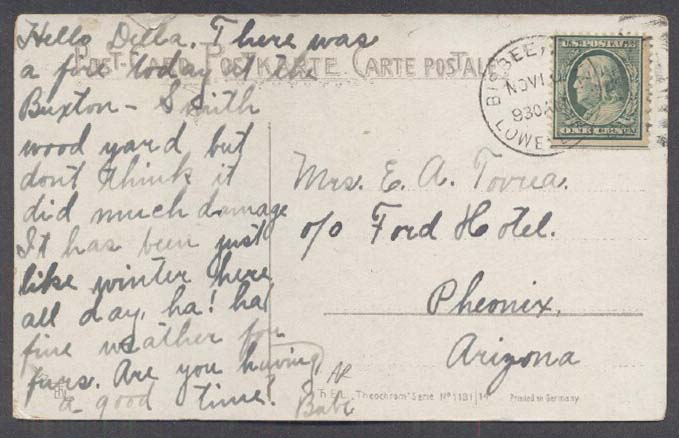 Hello Della. There was
a fire today at the
Buxton - Smith
wood yard but
dont think it
did much damage
It has been just
like winter here
all day, ha! ha!
fine weather for
furs. Are you having
a good time!
Babe
POST-CARD POSTKARTE CARTE POSTALE
BISBEE,
NOV 1
930A
LOWELL
U.S. POSTAGE
ONE CENT
Mrs. E. A. Tovrea.
c/o Ford Hotel.
Pheonix,
Arizona
Theochrom" Serie Nº 1181/14
Printed in Germany